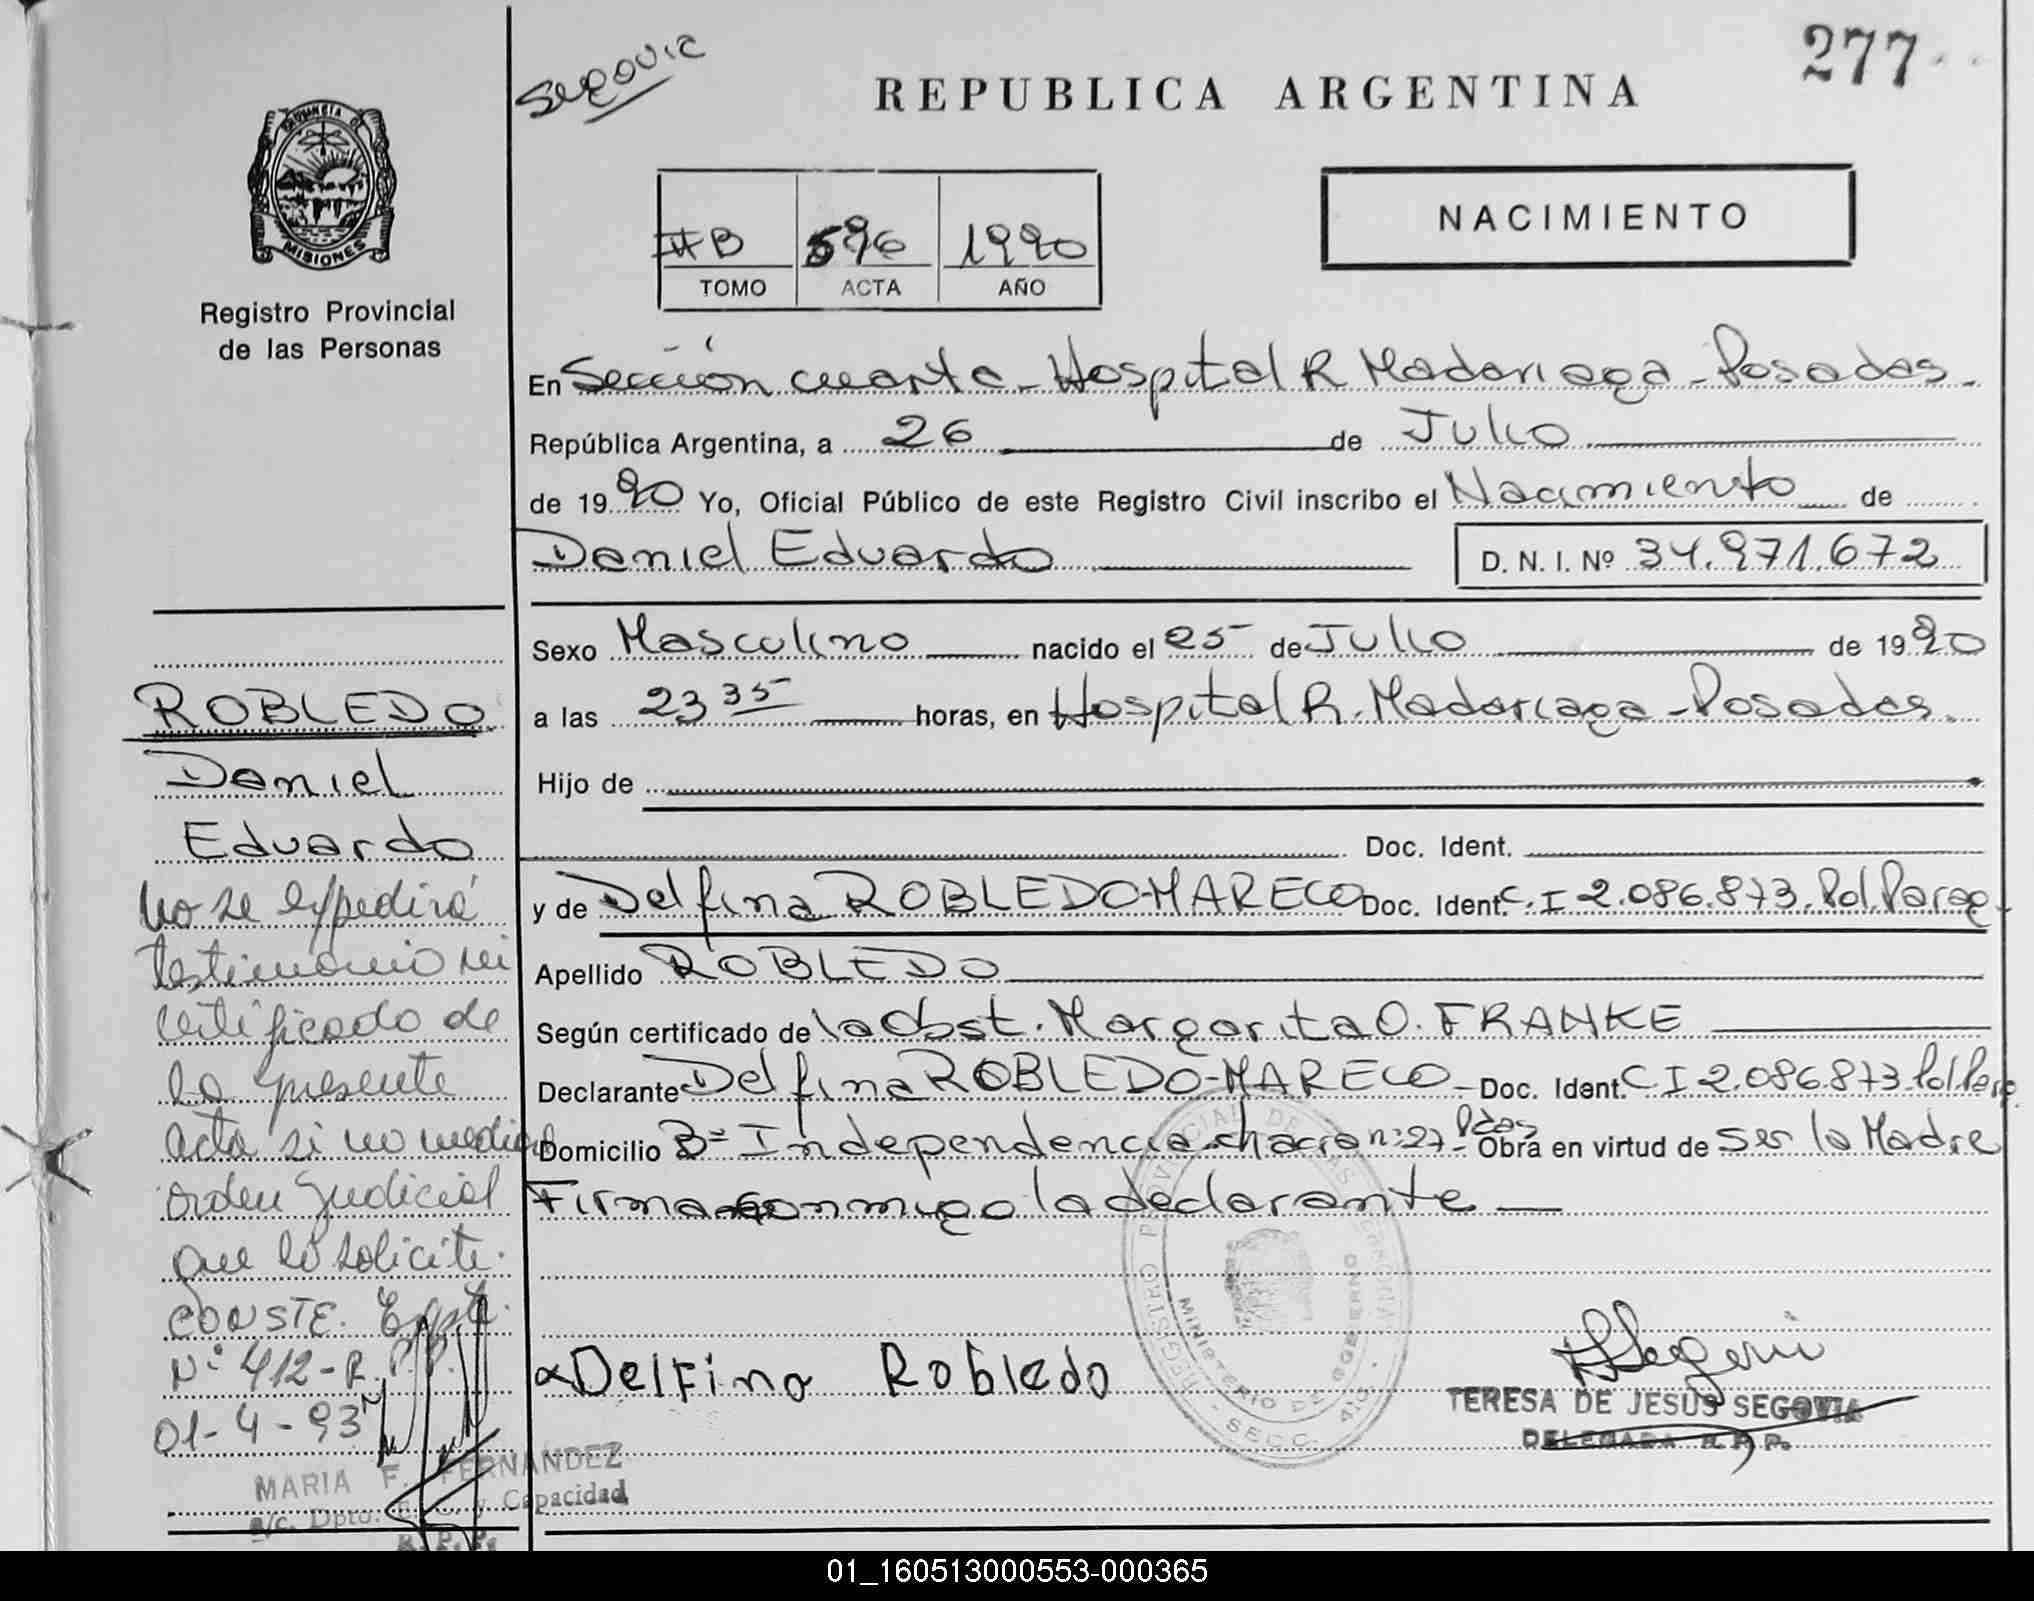 277
Segovia
REPUBLICA ARGENTINA
PROVINCIA DE
MISIONES
Registro Provincial
de las Personas
B 596 1990
TOMO ACTA AÑO
NACIMIENTO
En Sección cuarta - Hospital R Madariaga - Posadas -
República Argentina, a 26 de Julio
de 1990 Yo, Oficial Público de este Registro Civil inscribo el Nacimiento de
Daniel Eduardo D. N. I. Nº 34.971.672
Sexo Masculino nacido el 25 de Julio de 1990
a las 23 35 horas, en Hospital R. Madariaga - Posadas.
Hijo de
Doc. Ident.
y de Delfina ROBLEDO-MARECO Doc. Ident. C.I 2.086.873. Pol. Parag.
Apellido ROBLEDO
Según certificado de la Obst. Margarita O. FRANKE
Declarante Delfina ROBLEDO-MARECO - Doc. Ident. C I 2.086.873 Pol. Parg.
Domicilio Bº Independencia chacra nº 27 - Pdas Obra en virtud de Ser la Madre
Firma conmigo la declarante
ROBLEDO
Daniel
Eduardo
No se expedirá
testimonio ni
certificado de
la presente
acta si no media
orden Judicial
que lo solicite.
CONSTE. Expte.
Nº 412-R.P.P.
01-4-93
MARIA F. FERNANDEZ
a/c. Dpto. E. C. y Capacidad
R. P. P.
Delfina Robledo
REGISTRO PROVINCIAL DE LAS PERSONAS
MINISTERIO DE GOBIERNO
SECC. 4
TERESA DE JESUS SEGOVIA
DELEGADA R. P. P.
01_160513000553-000365